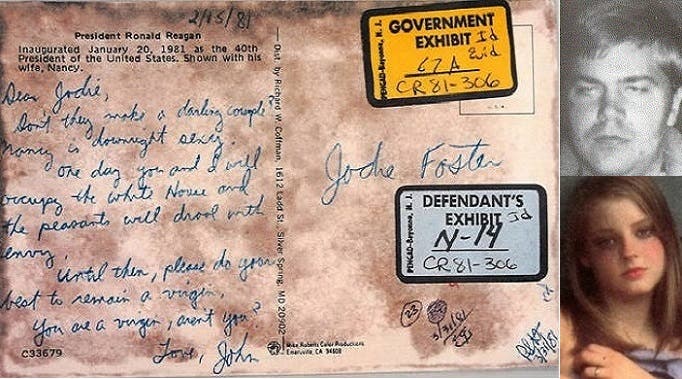 2/15/81
President Ronald Reagan
Inaugurated January 20, 1981 as the 40th
President of the United States. Shown with his
wife, Nancy.
Dear Jodie,
Don't they make a darling couple
Nancy is downright sexy.
One day you and I will
occupy the White House and
the peasants will drool with
envy.
Until then, please do your
best to remain a virgin.
You are a virgin, aren't you?
Love, John
C33679
Dist. by Richard W. Coffman, 1612 Ladd St., Silver Spring, MD 20902
Mike Roberts Color Productions
Emeryville, CA 94608
Jodie Foster
PENGAD-Bayonne, N. J.
GOVERNMENT
EXHIBIT Id
Evid
67A
CR 81-306
U.S.A.
PENGAD-Bayonne, N. J.
DEFENDANT'S
EXHIBIT Id
N-14
CR 81-306
23
3/31/81
3/31/81